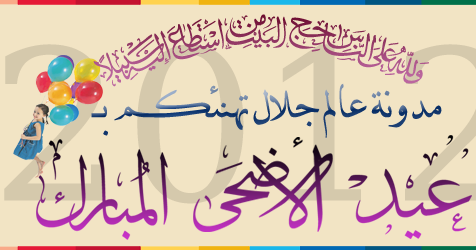 وَلِلّهِ عَلَى النَّاسِ حِجُّ الْبَيْتِ مَنِ اسْتَطَاعَ إِلَيْهِ سَبِيلًا
مدونة عالم جلال تهنئكم بـ
عيد الأضحى المبارك
2012